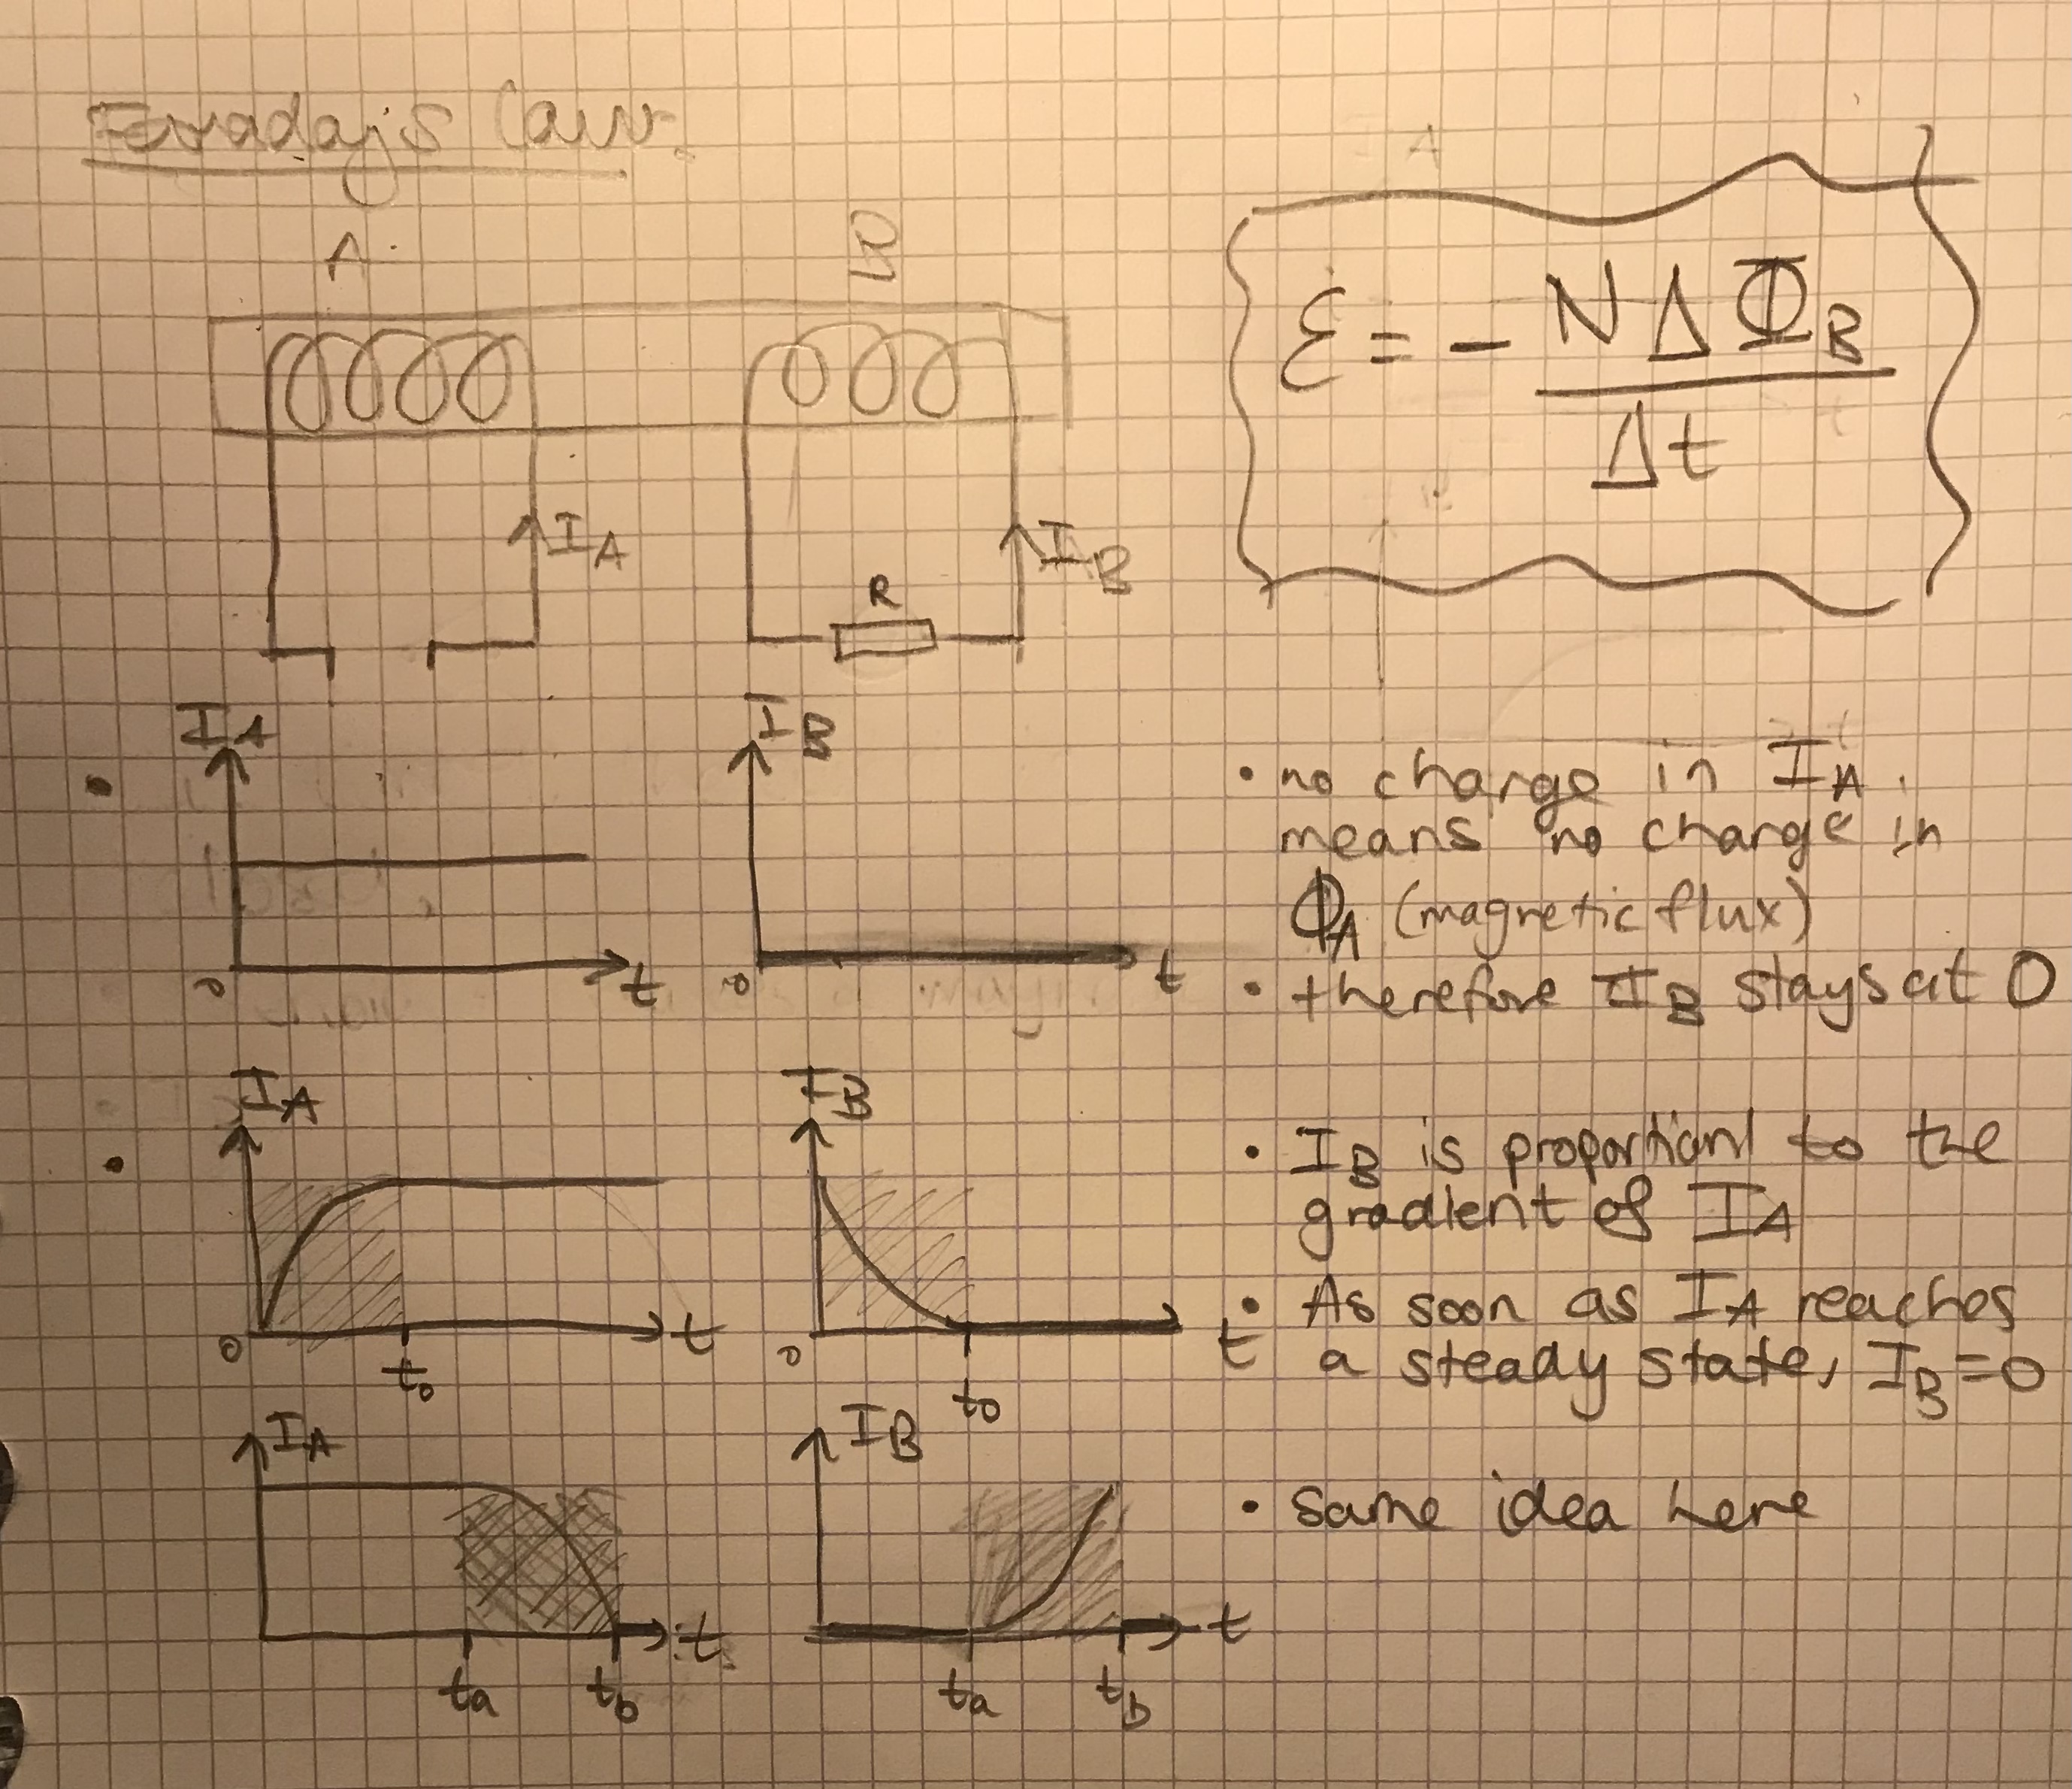 Faraday's Law.
A
B
ε = - NΔΦB / Δt
IA
IB
R
IA
IB
0
t
0
t
• no change in IA
means no change in
ΦA (magnetic flux)
• therefore IB stays at 0
IA
IB
0
t0
t
0
t0
t
• IB is proportionl to the
gradient of IA
• As soon as IA reaches
a steady state, IB=0
IA
IB
ta
tb
t
ta
tb
t
• same idea here